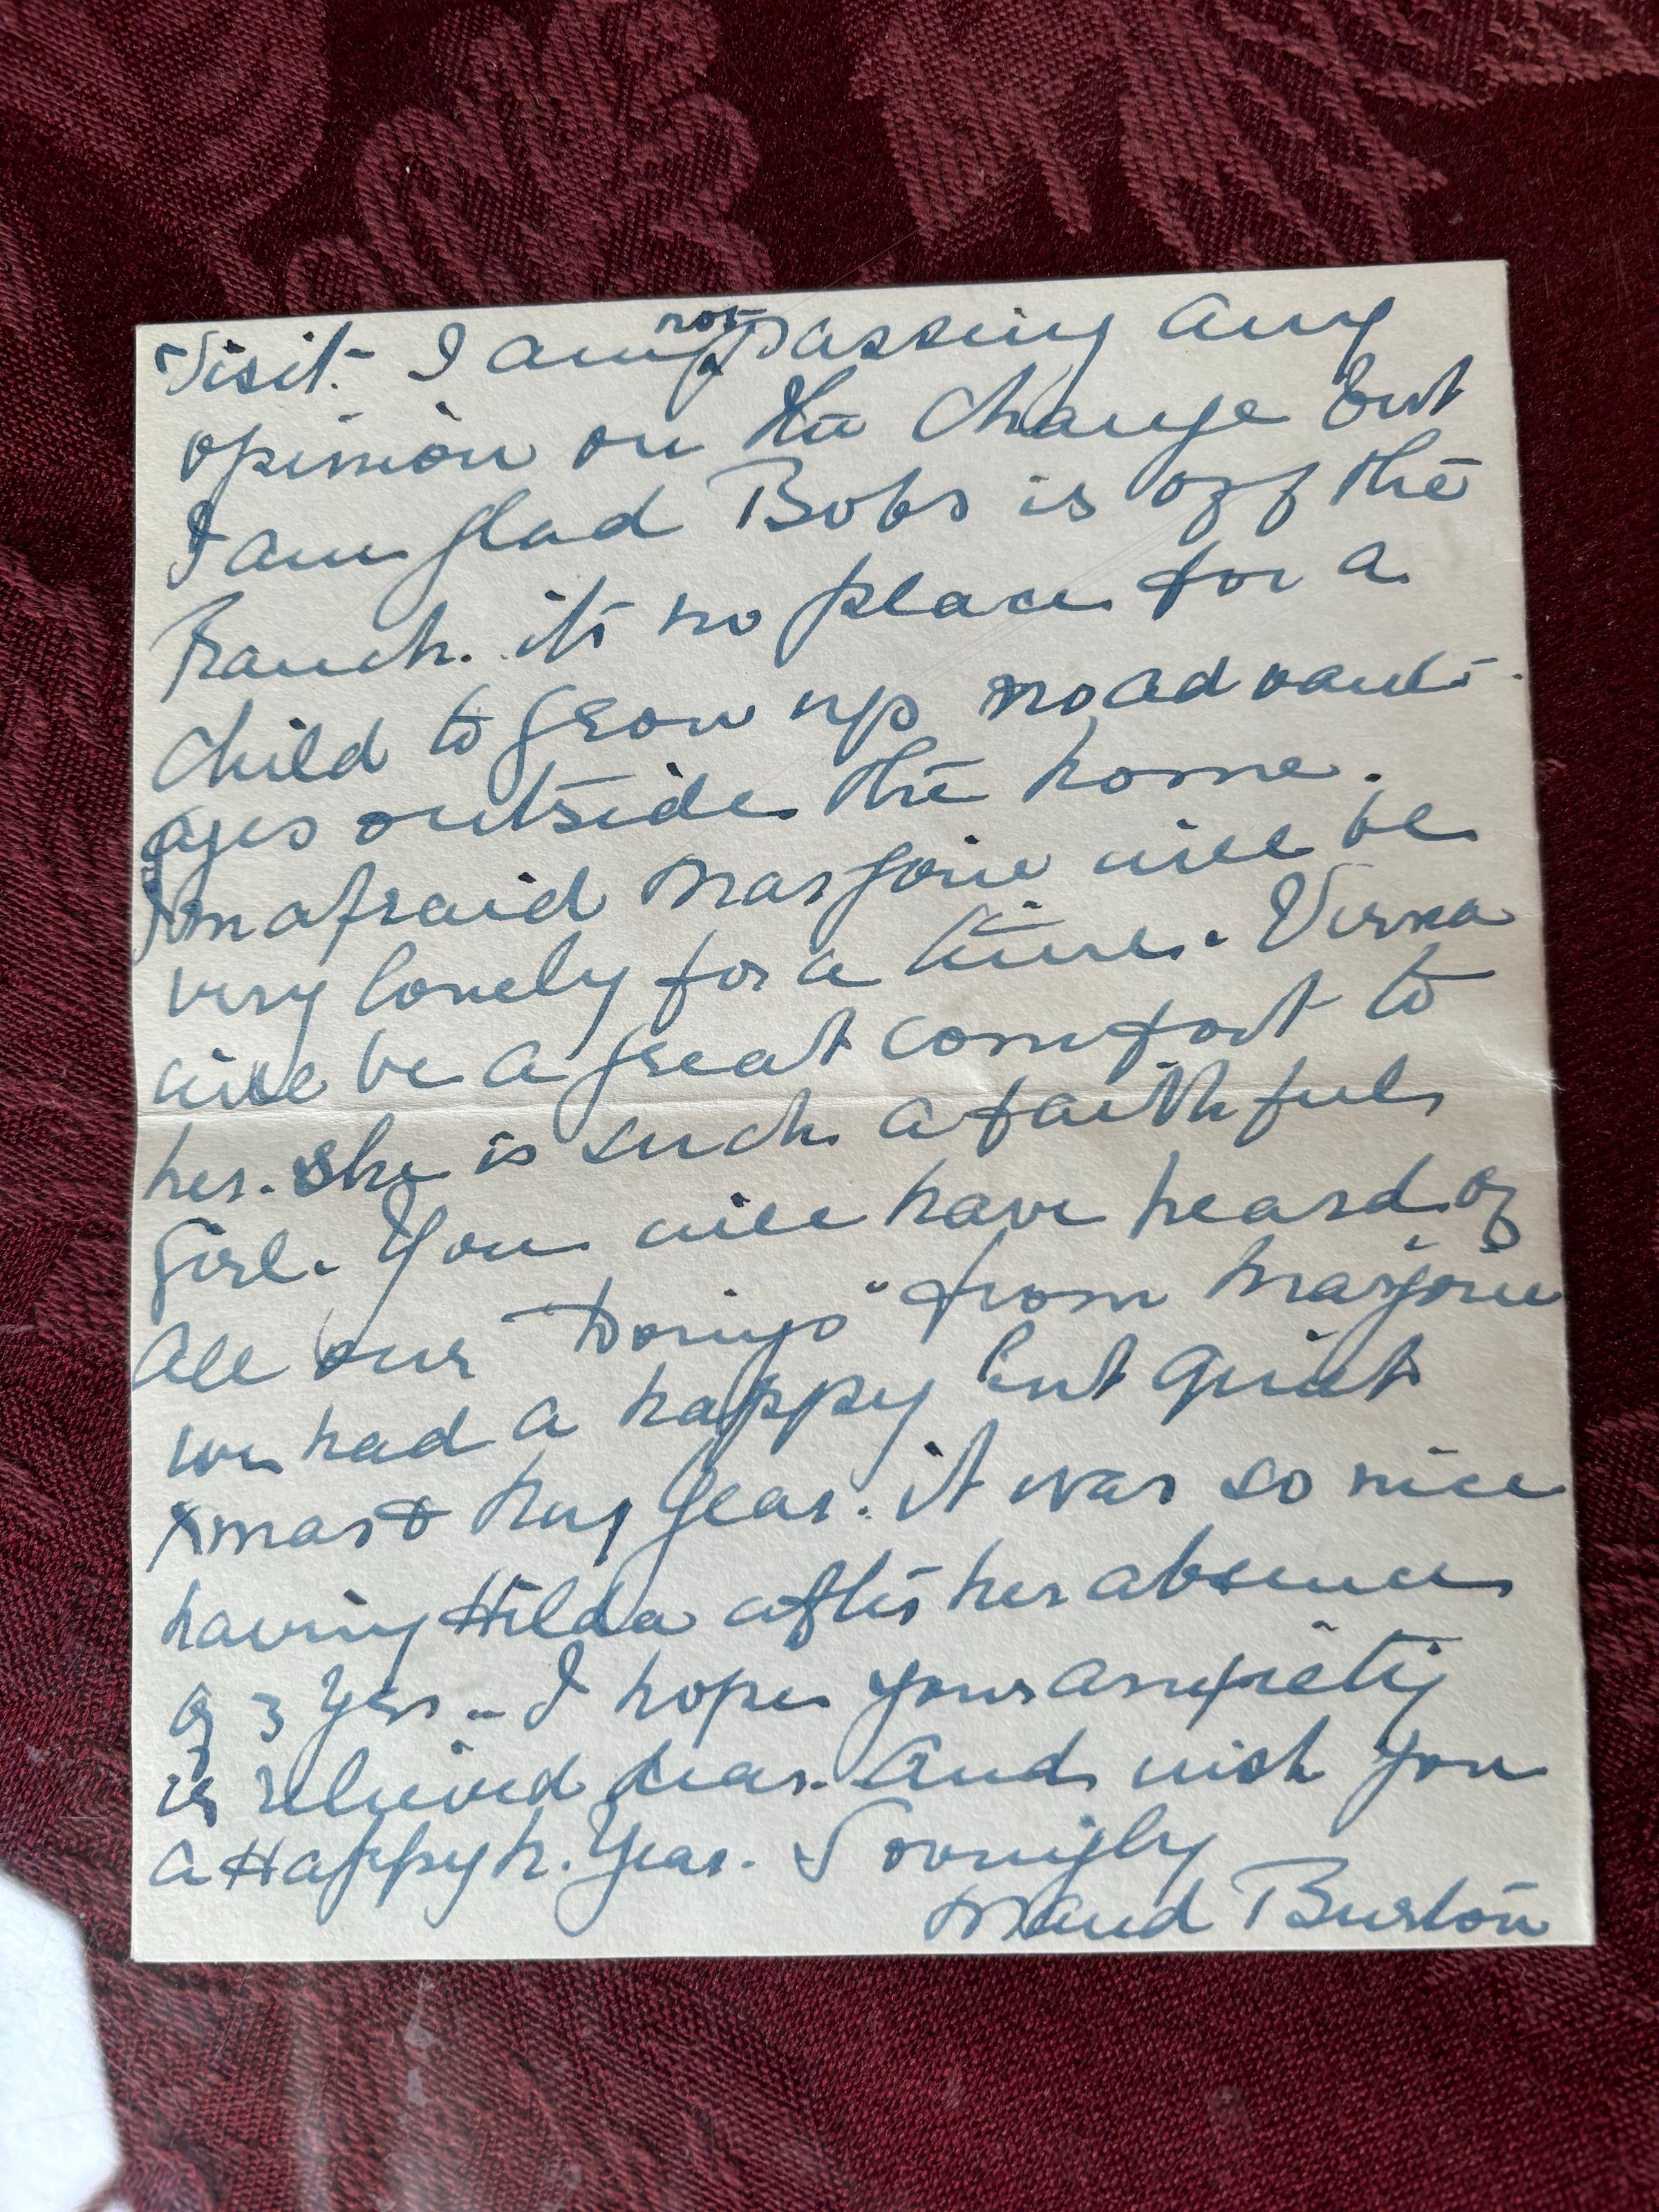 Visit. I am not passing any
opinion on the change but
I am glad Bobs is off the
Ranch. its no place for a
child to grow up no advant-
ages outside the home.
Im afraid Marjorie will be
very lonely for a time. Verna
will be a great comfort to
her. She is such a faithful
Girl. You will have heard of
all our "Doings" from Marjorie
we had a happy but quiet
Xmas & New Year. it was so nice
having Hilda after her absence
of 3 yrs - I hope your anxiety
is relieved dear. And wish you
a Happy N. Year. Lovingly
Maud Burton